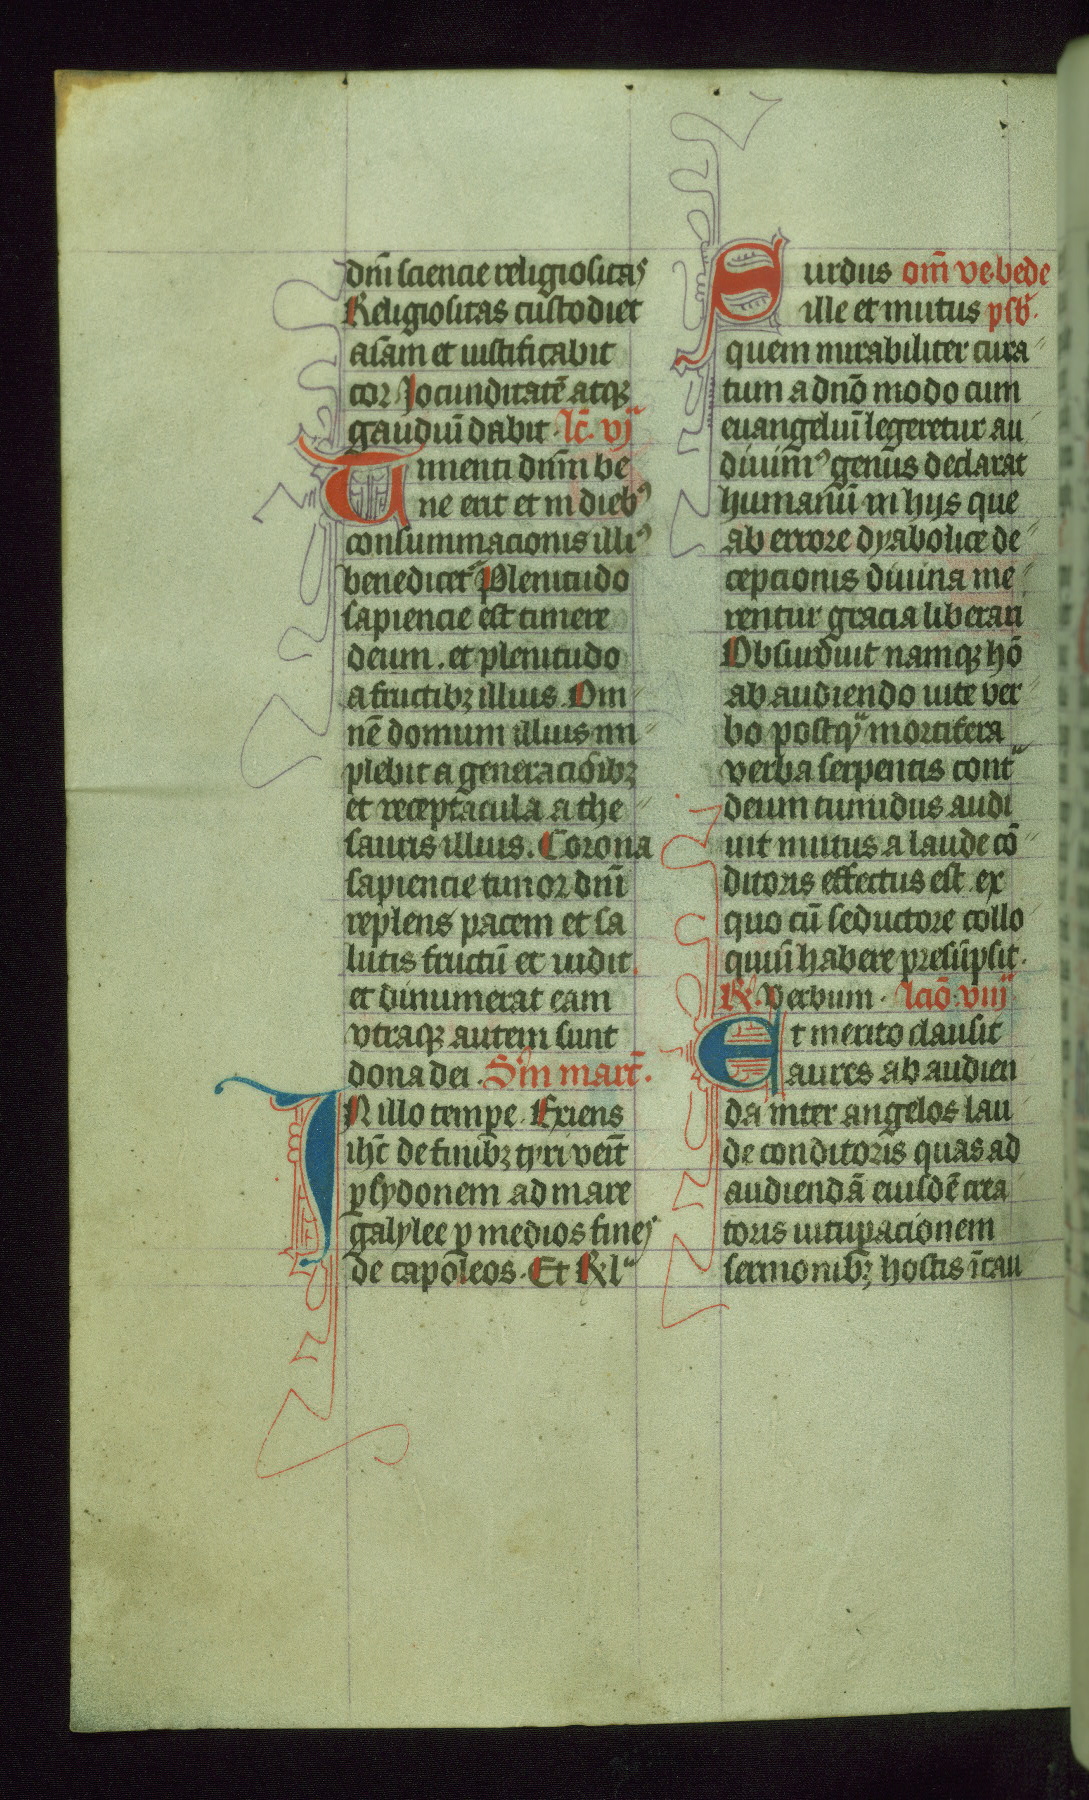 dnı̄ sciencie religiositas
Religiositas custodiet
asam et iustificabit
cor Jocunditatē atqꝫ
gaudiū dabit · lc̄. vjᵃ
Timenti dnı̄m be
ne erit et in diebꝰ
consummacionis illiꝰ
benedicet᷑ Plenitudo
sapiencie est timere
deum . et plenitudo
a fructibꝫ illius . Om
nē domum illius im
plebit a generacioı̄bꝫ
et receptacula a the
sauris illius . Corona
sapiencie timor dnı̄
replens pacem et sa
lutis fructū et uidit
et dinumerat eam
vtraqꝫ autem sunt
dona dei . Sm̄ marc̄ .
IN illo tempe . Exiens
ihc̄ de finibꝫ tyri veit̄
ꝑ sydonem ad mare
galylee ꝑ medios fines
de capoleos . Et Rlᵃ
Surdus om̄ ve. bede
ille et mutus pſb̄.
quem mirabiliter cura
tum a dnō modo cum
euangeliū legeretur au
diuim̄ꝰ genus declarat
humanū in hijs que
ab errore dyabolice de
cepcionis diuina me
rentur gracia liberari
Obsurduit namqꝫ hō
ab audiendo uite ver
bo postqᵃ mortifera
verba serpentis contᵃ
deum tumidus audi
uit mutus a laude cō
ditoris effectus est ex
quo cū seductore collo
quiū habere presūpsit .
R̸. Verbum . lcō. viijᵃ
Et merito clausit
aures ab audien
da inter angelos lau
de conditoris quas ad
audiendā eiusdē crea
toris uituꝑacionem
sermonibꝫ hostis īcau